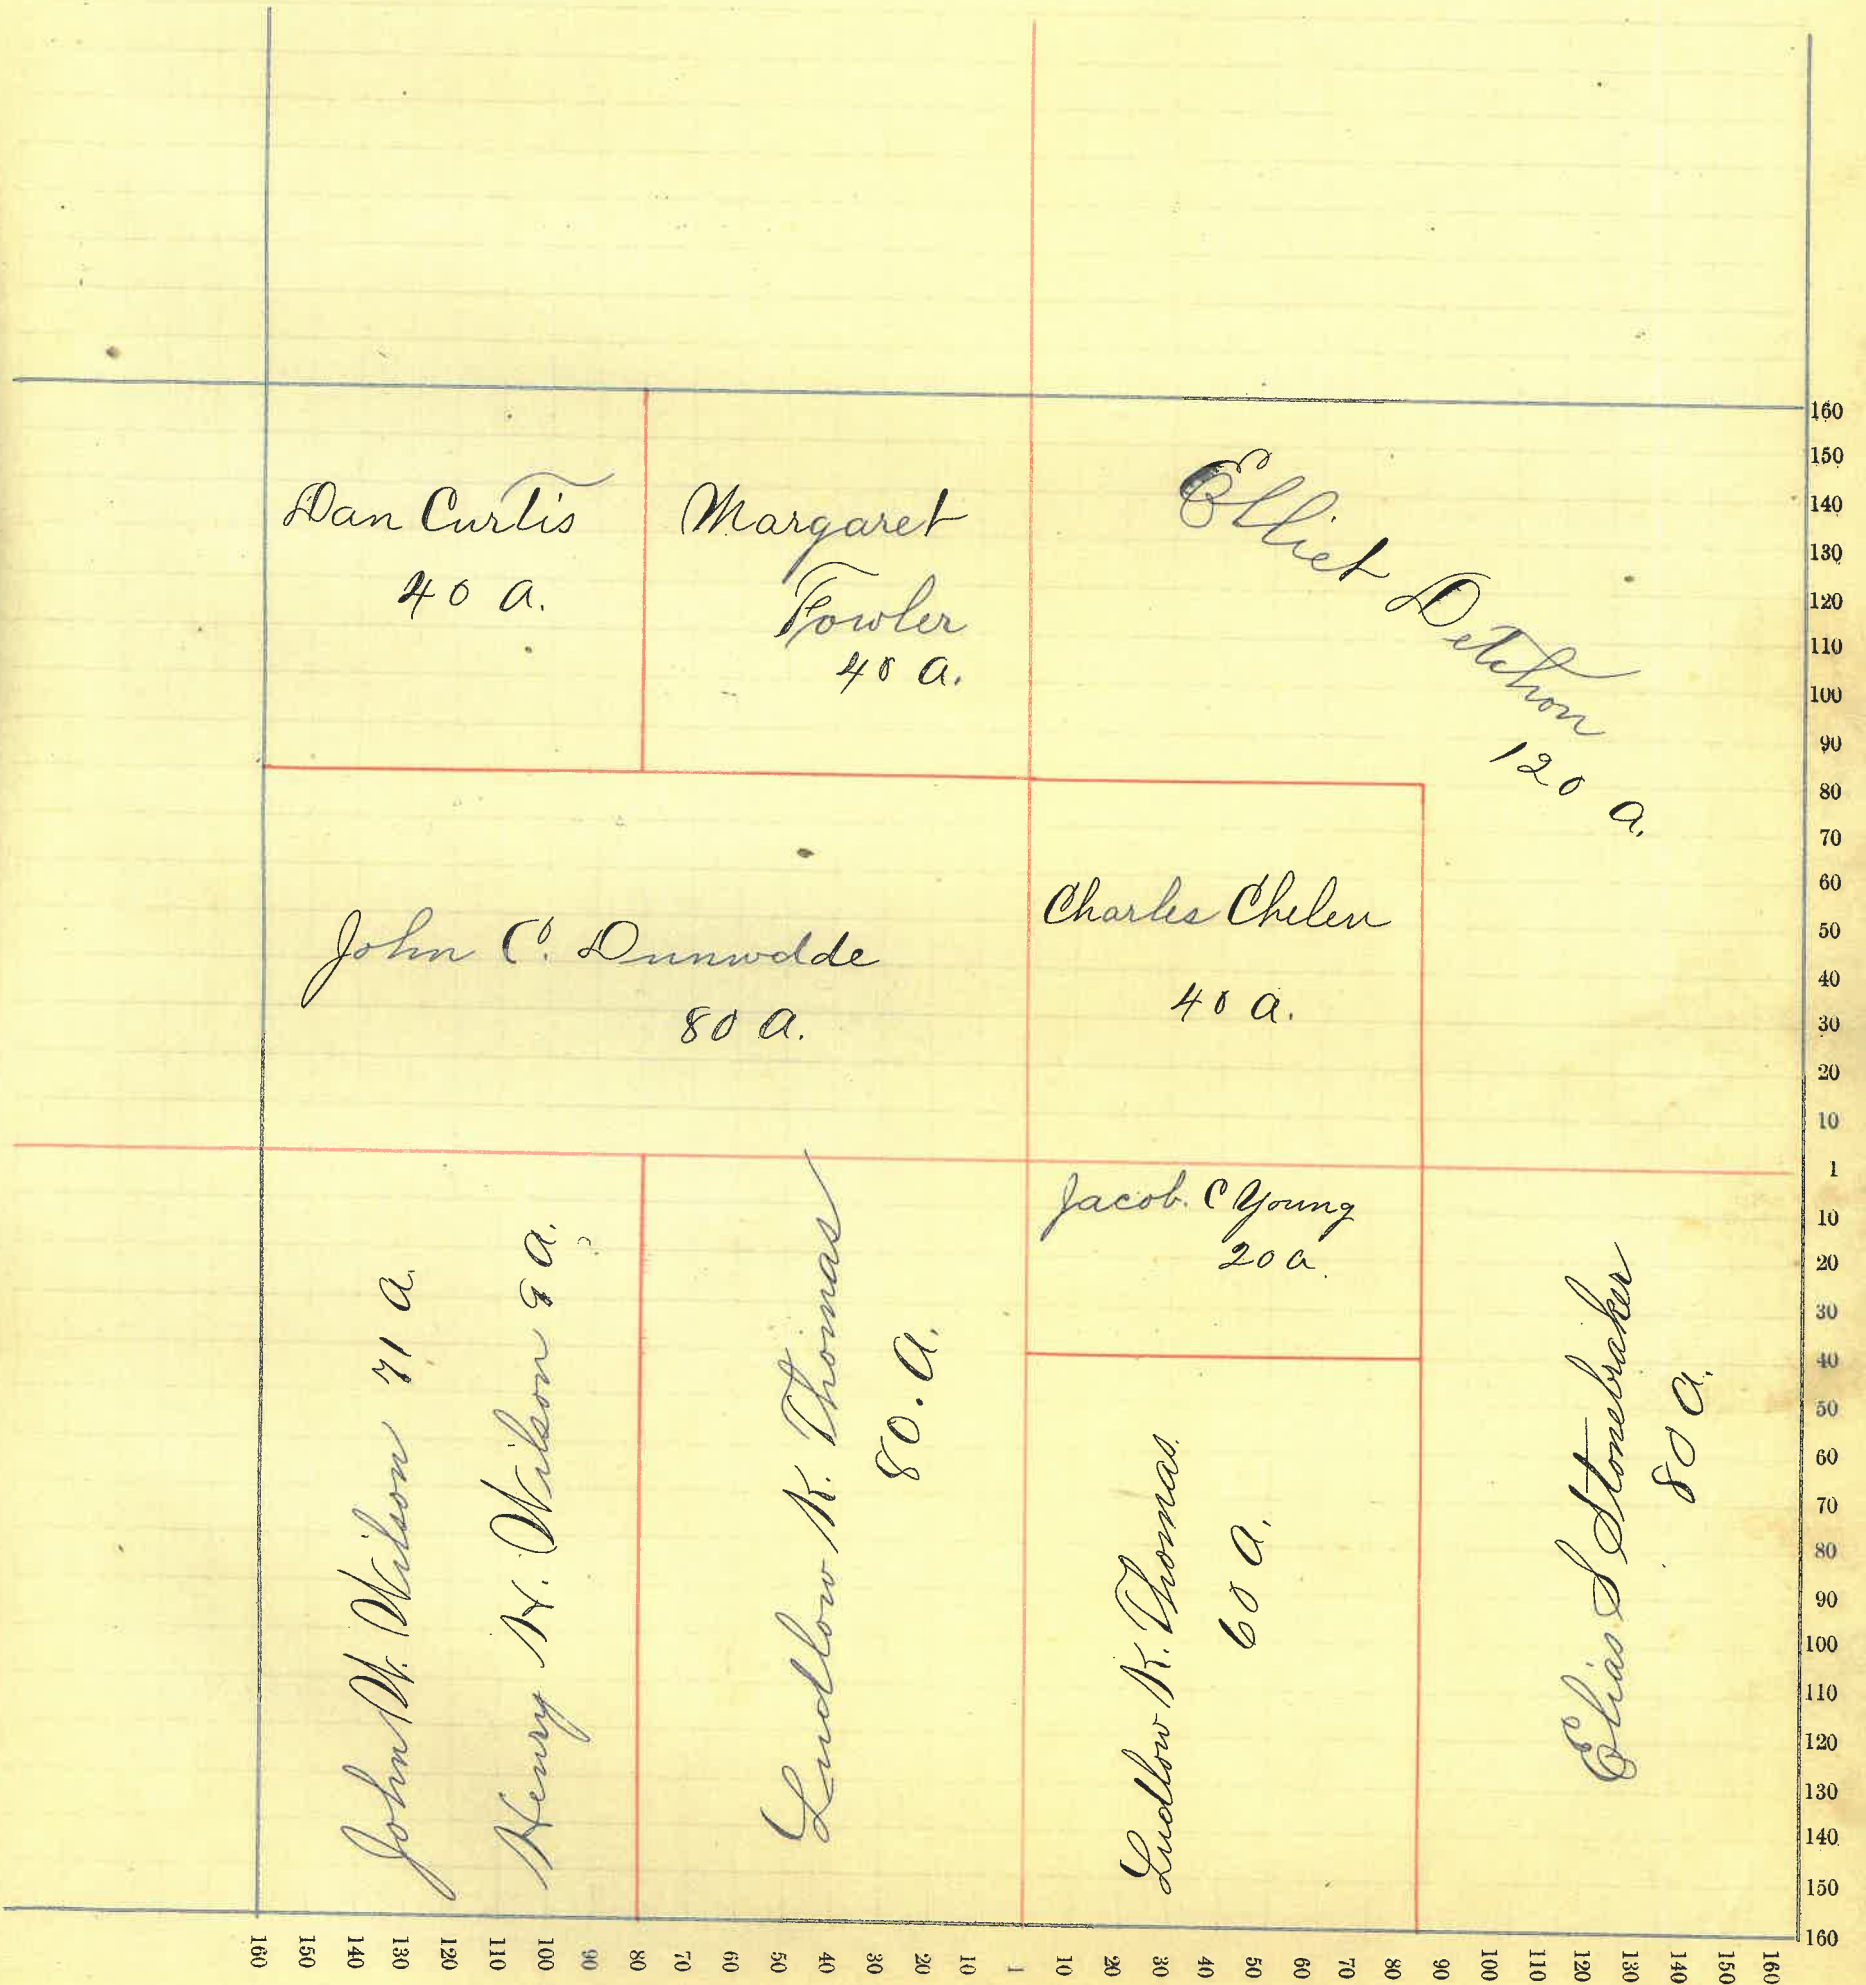 Dan Curtis
40 a.
Margaret
Fowler
40 a.
Elliet Detchon
120 a.
John C. Dunwodde
80 a.
Charles Chelen
40 a.
Jacob. C Young
20 a.
John W. Wilson 71 a.
Henry H. Wilson 9 a.
Ludlow K. Thomas
80. a.
Ludlow K. Thomas.
60 a.
Elias S Stonebraker
80 a.
160
150
140
130
120
110
100
90
80
70
60
50
40
30
20
10
1
10
20
30
40
50
60
70
80
90
100
110
120
130
140
150
160
160 150 140 130 120 110 100 90 80 70 60 50 40 30 20 10 1 10 20 30 40 50 60 70 80 90 100 110 120 130 140 150 160